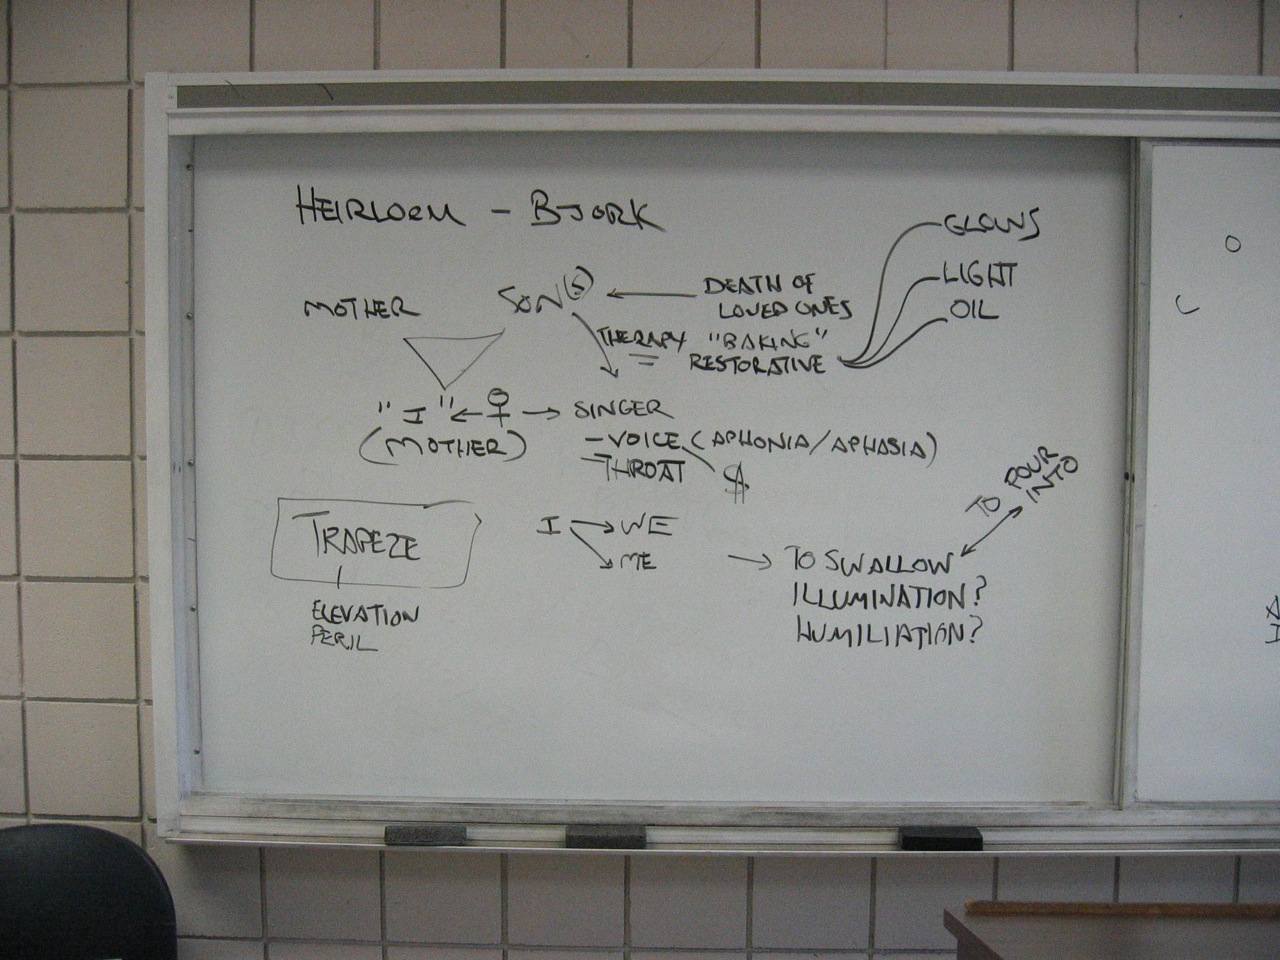 HEIRLOOM - BJORK
GLOWS
LIGHT
OIL
MOTHER
SON(S)
DEATH OF
LOVED ONES
THERAPY "BAKING"
RESTORATIVE
"I"
(MOTHER)
SINGER
- VOICE (APHONIA/APHASIA)
- THROAT
$
TO POUR
INTO
TRAPEZE
ELEVATION
PERIL
I → WE
ME
→ TO SWALLOW
ILLUMINATION?
HUMILIATION?